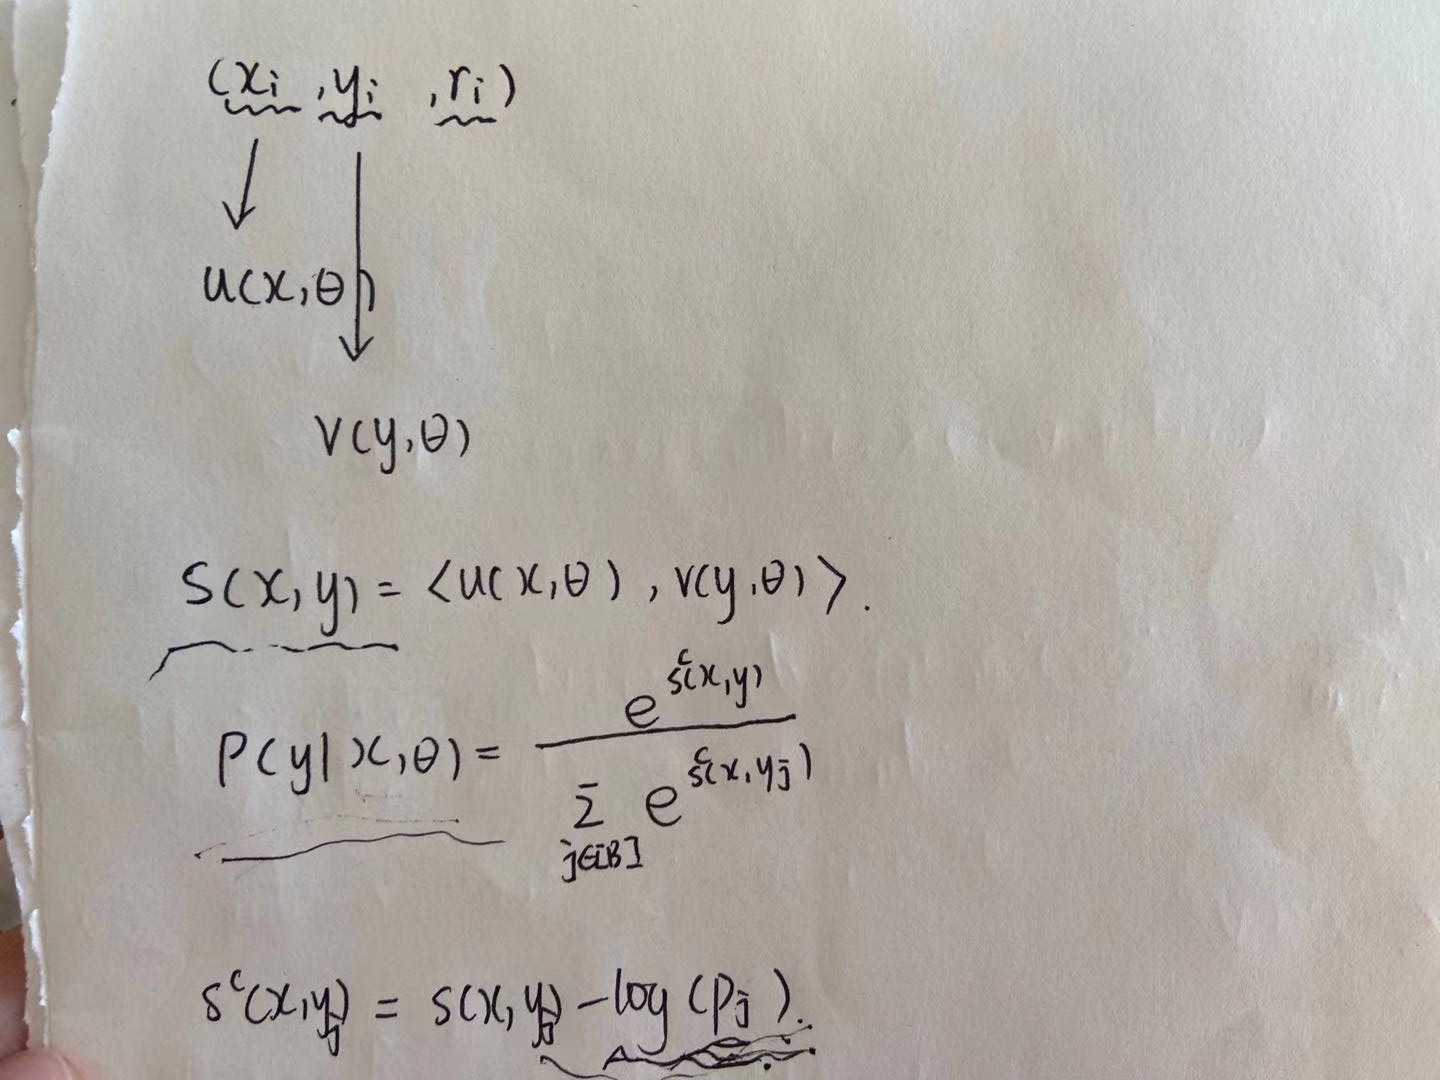 (xi, yi, ri)
u(x,θ)
v(y,θ)
s(x,y) = <u(x,θ), v(y,θ)>.
P(y|x,θ) = e^{s^c(x,y)} / Σ_{j∈[B]} e^{s^c(x,yj)}
s^c(x,yj) = s(x,yj) - log(pj).